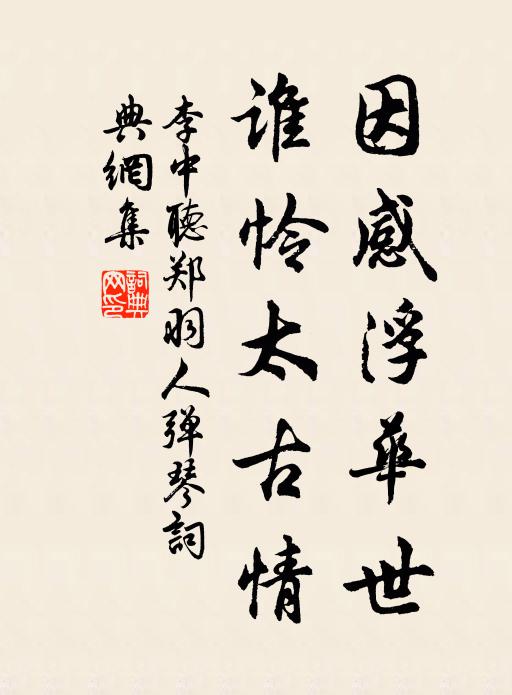 因感浮華世
谁怜太古情
李中聴郑羽人弹琴詞
典網集
詞典網印